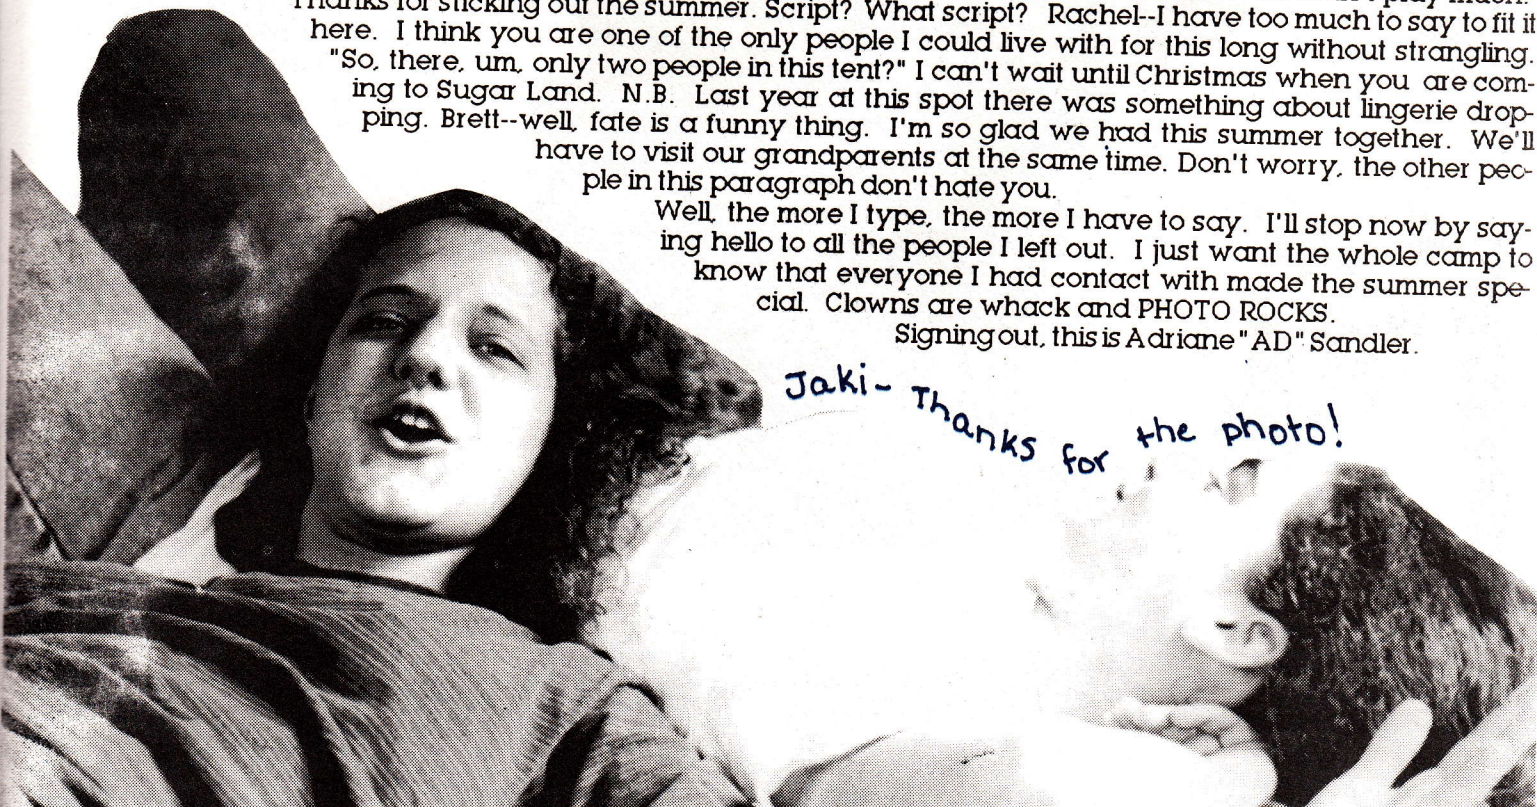 Thanks for sticking out the summer. Script? What script? Rachel--I have too much to say to fit it
here. I think you are one of the only people I could live with for this long without strangling.
"So, there, um, only two people in this tent?" I can't wait until Christmas when you are com-
ing to Sugar Land. N.B. Last year at this spot there was something about lingerie drop-
ping. Brett--well, fate is a funny thing. I'm so glad we had this summer together. We'll
have to visit our grandparents at the same time. Don't worry, the other peo-
ple in this paragraph don't hate you.
Well, the more I type, the more I have to say. I'll stop now by say-
ing hello to all the people I left out. I just want the whole camp to
know that everyone I had contact with made the summer spe-
cial. Clowns are whack and PHOTO ROCKS.
Signing out, this is Adriane "AD" Sandler.
Jaki- Thanks for the photo!